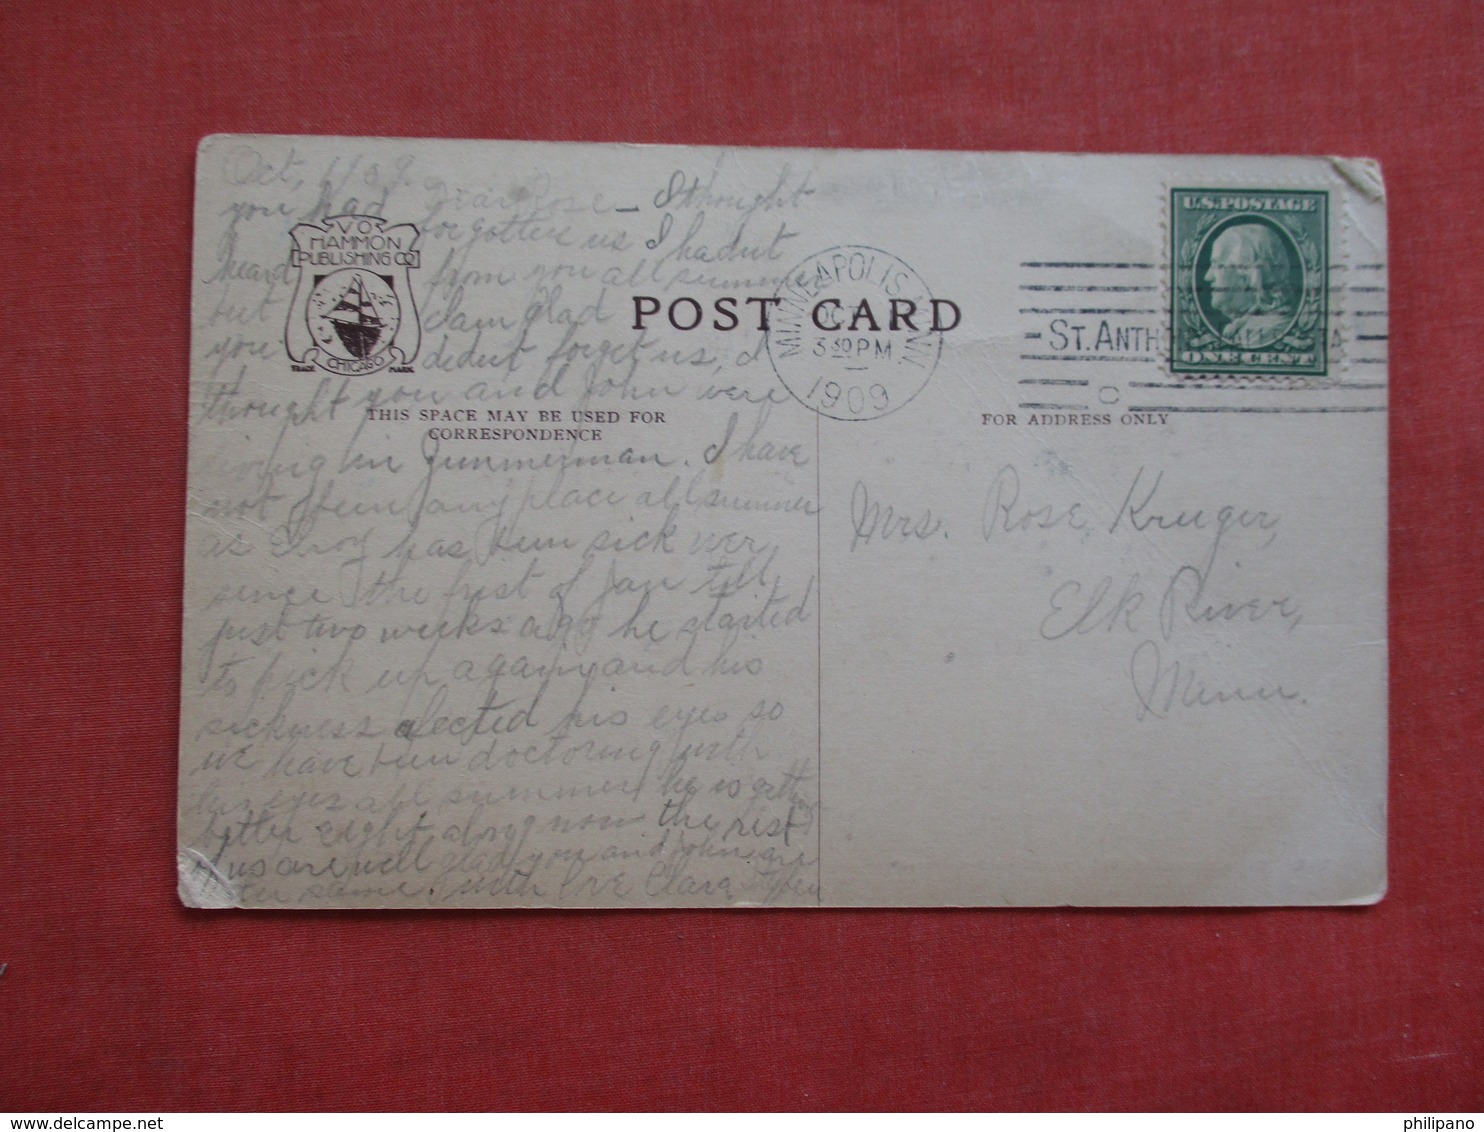 Oct, 1/09.
Dear Rose - I thought
you had forgotten us I hadnt
heard from you all summer
but I am glad
you dident forget us, I
thought you and John were
living in Zimmerman. I have
not been any place all summer
as has ben sick ever
since the first of Jan till
just two weeks ago he started
to pick up again and his
sickness afected his eyes so
we have ben doctoring with
his eyes all summer he is getting
better right along now the rest
of us are well glad you and John are
the same. with love Clara
V O
HAMMON
PUBLISHING CO
CHICAGO
TRADE MARK
POST CARD
THIS SPACE MAY BE USED FOR
CORRESPONDENCE
FOR ADDRESS ONLY
MINNEAPOLIS, MINN.
OCT
3 30 PM
1909
ST. ANTH
C
U.S. POSTAGE
ONE CENT
Mrs. Rose Kruger,
Elk River,
Minn.
philipano
www.delcampe.net